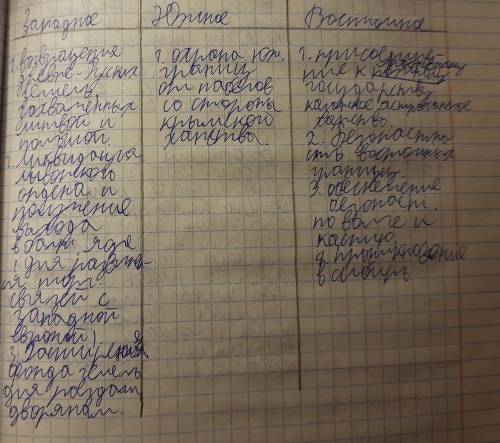 Западное
1. возвращение
древне-русских
земель,
захваченных
литвой и
польшой
2. Ликвидация
ливонского
ордена и
получение
выхода
в балт.
для разви-
я торг.
связей с
Западной
европой
3. Расширения
фонда земель
для раздачи
дворянам.
Южное
1. охрана юж.
границ
от набегов
со стороны
крымского
ханства.
Восточное
1. присоедине-
ние к
государству
казанское, астраханское
ханство.
2. Безопастно
сть восточных
границ
3. обеспечение
безопаст.
по волге и
каспию
4. продвижение
в сибирь